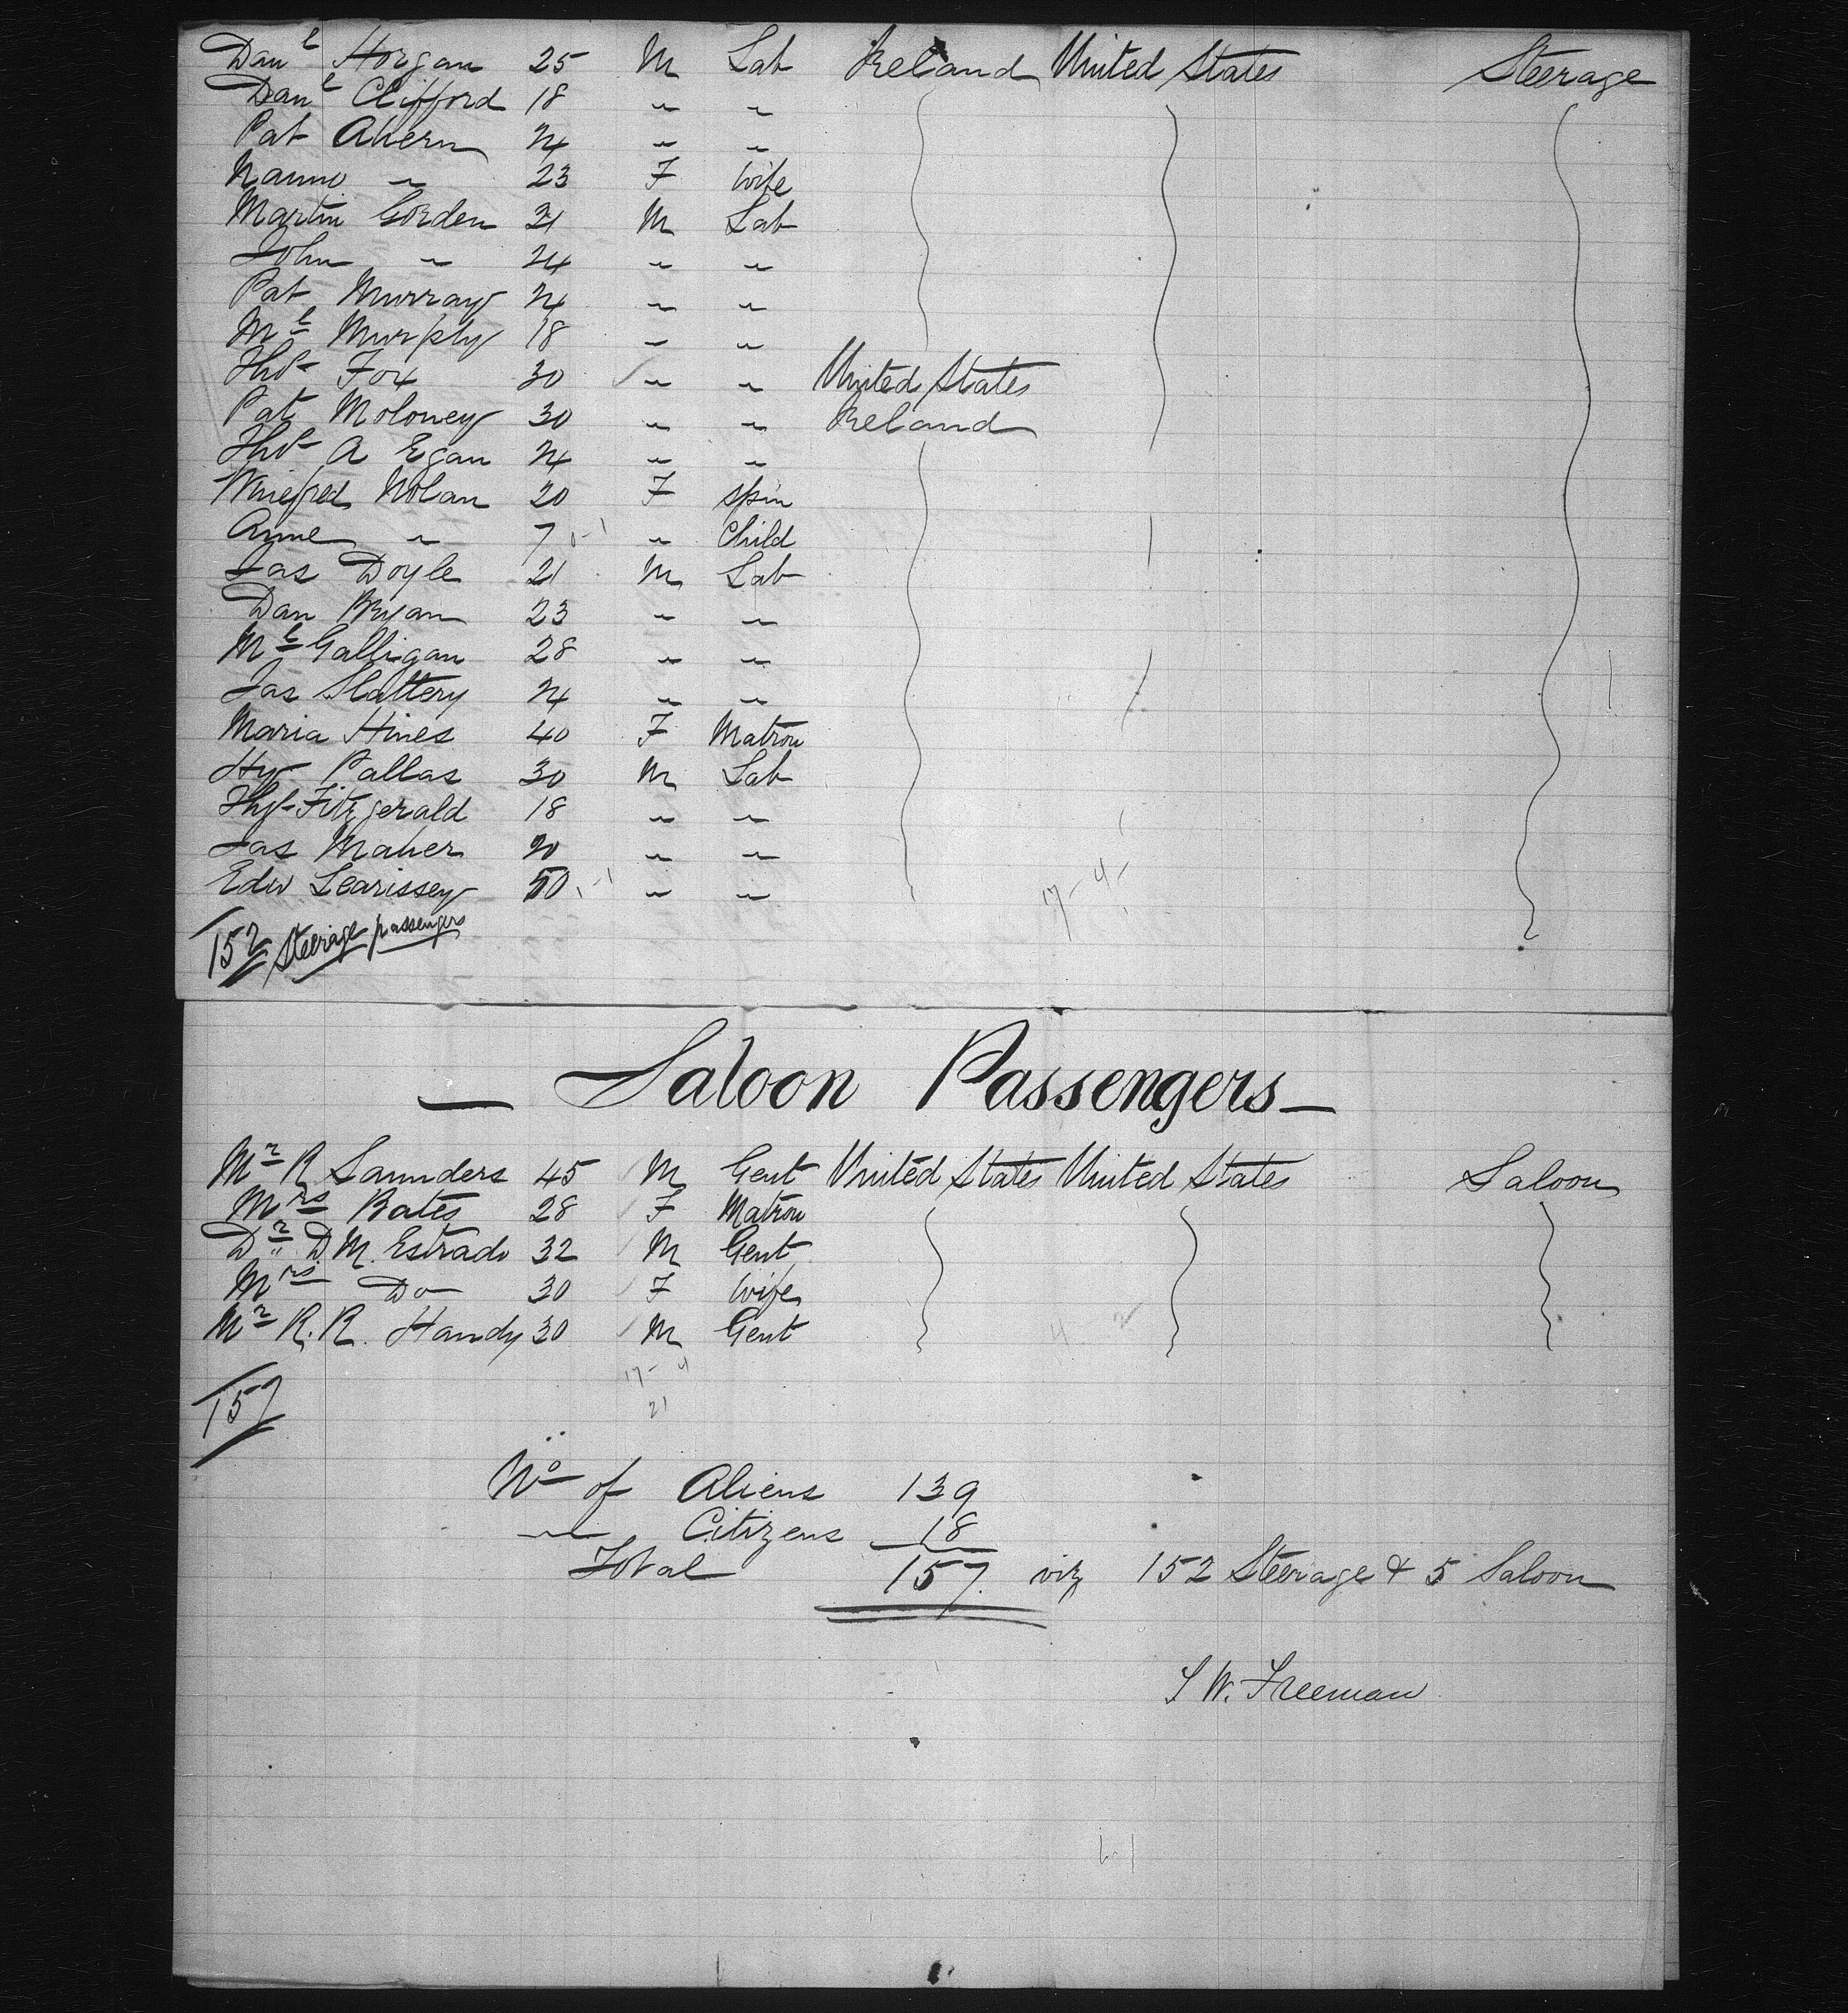 Danl Horgan 25 M Lab Ireland United States Steerage
Danl Clifford 18 " "
Pat Ahern 24 " "
Nanno " 23 F Wife
Martin Gorden 21 M Lab
John " 24 " "
Pat Murray 24 " "
Ml Murphy 18 " "
Thos Fox 30 " " United States
Pat Moloney 30 " " Ireland
Thos A Egan 24 " "
Winefred Nolan 20 F Spin
Anne " 7 " Child
Jas Doyle 21 M Lab
Dan Bryan 23 " "
Ml Galligan 28 " "
Jas Slattery 24 " "
Maria Hines 40 F Matron
Hy Pallas 30 M Lab
Thos Fitzgerald 18 " "
Jas Maher 20 " "
Edw Learissey 50 " "
17-4-
152 Steerage passengers
— Saloon Passengers —
Mr R Saunders 45 M Gent United States United States Saloon
Mrs Bates 28 F Matron
Dr D M. Estrado 32 M Gent
Mrs Do 30 F Wife
Mr R. R. Handy 30 M Gent
17-4
21
157
No of Aliens 139
" Citizens 18
Total 157 viz 152 Steerage & 5 Saloon
S W. Freeman